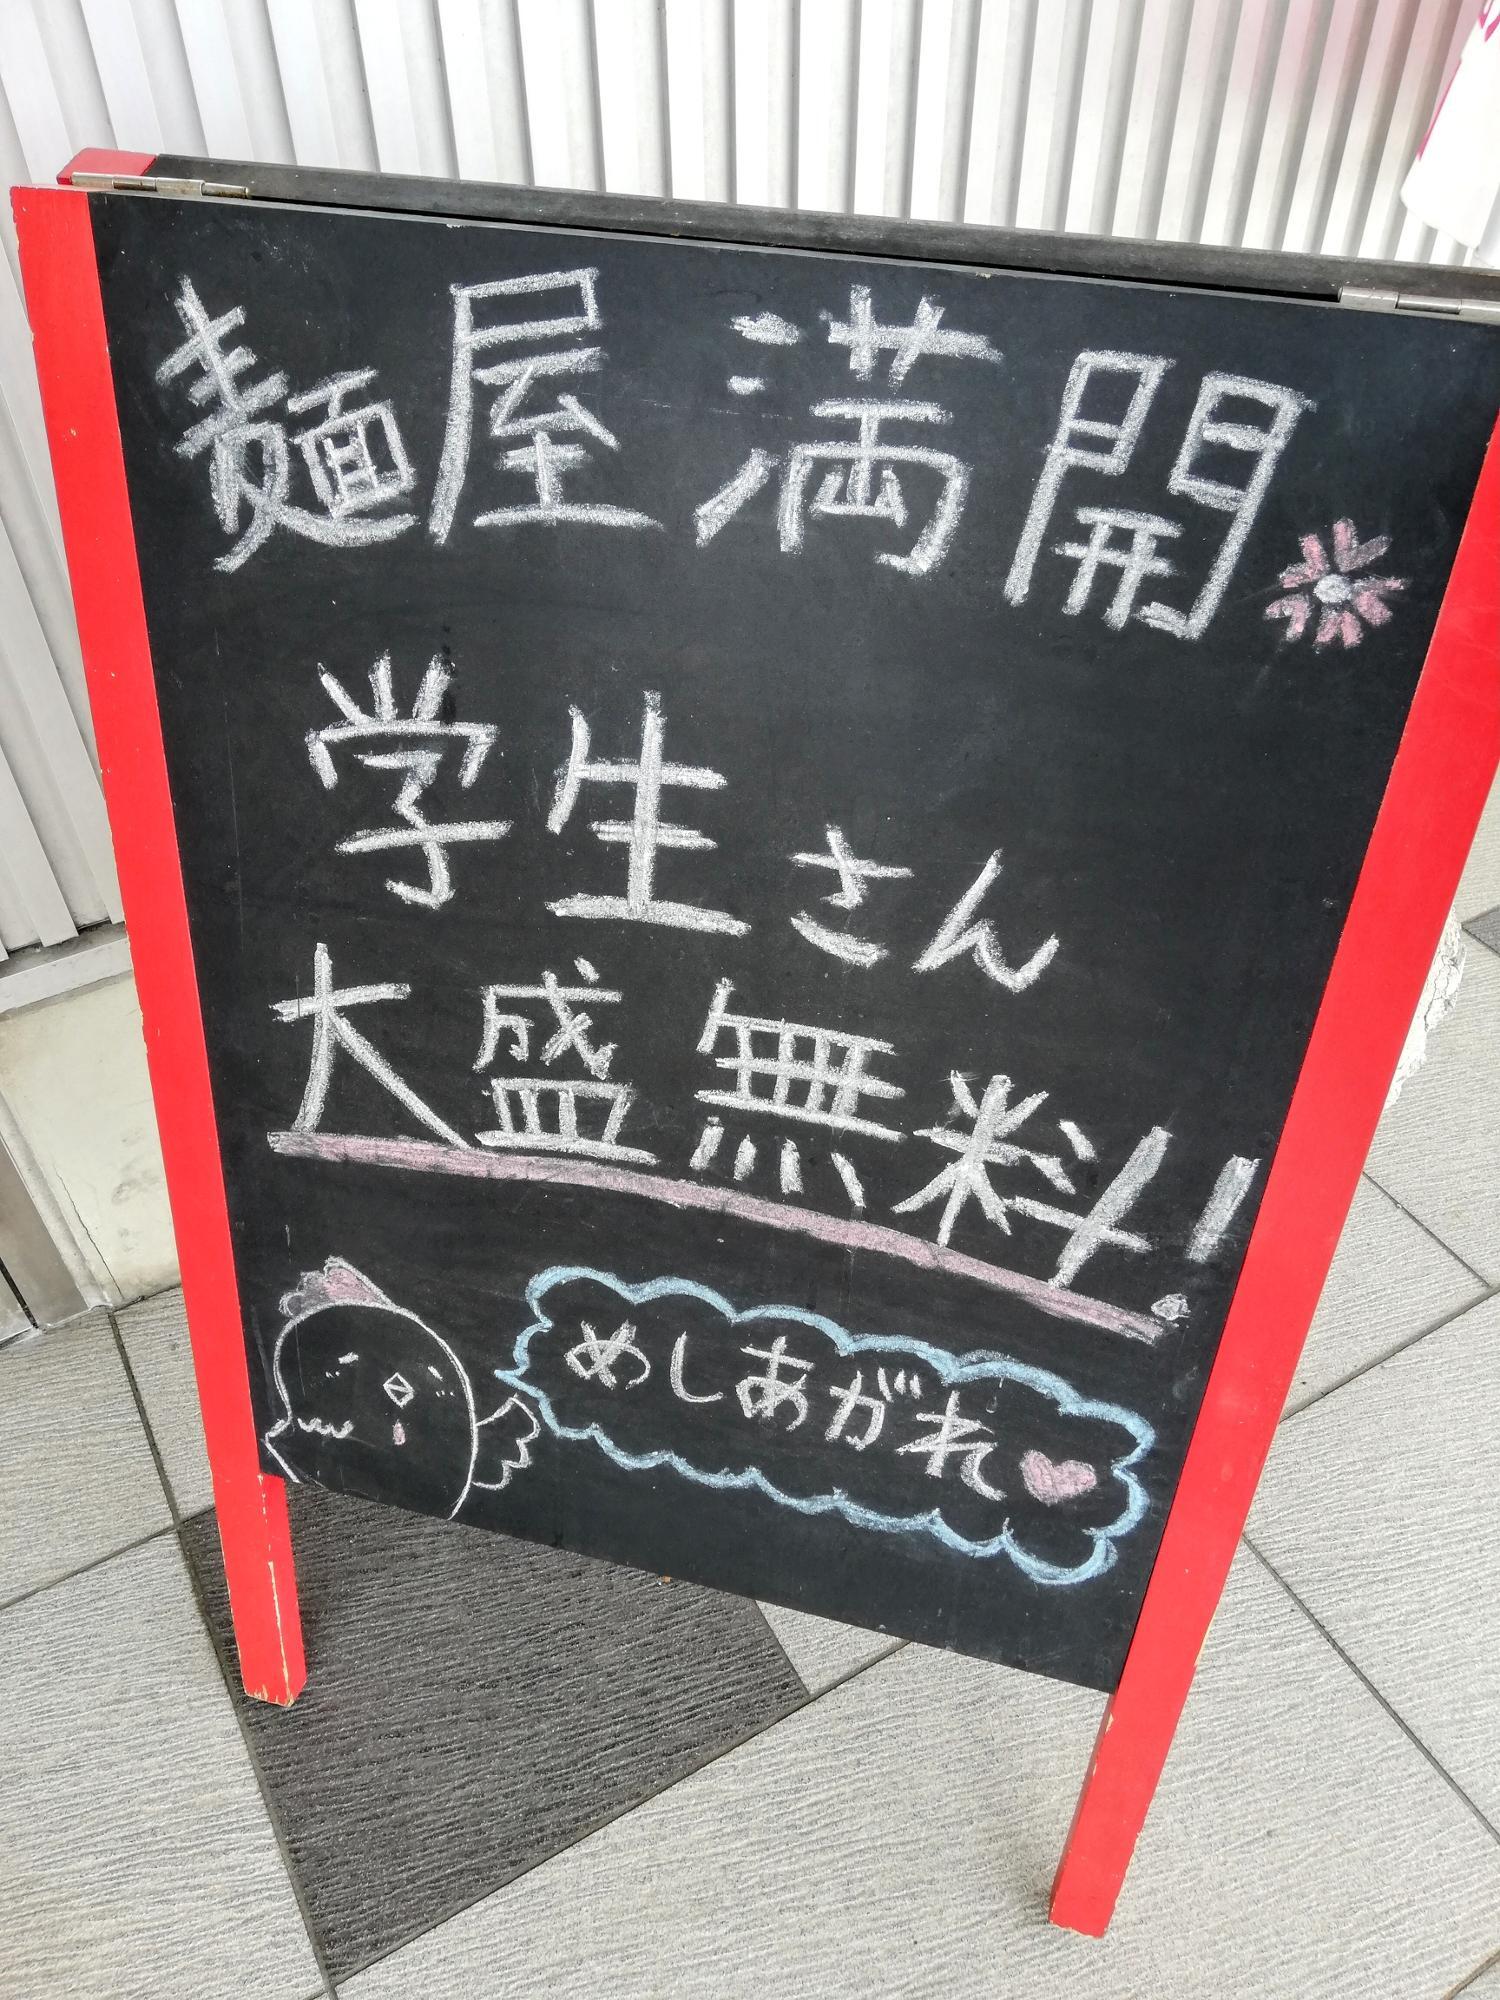 麺屋 満開
学生さん
大盛無料!
めしあがれ